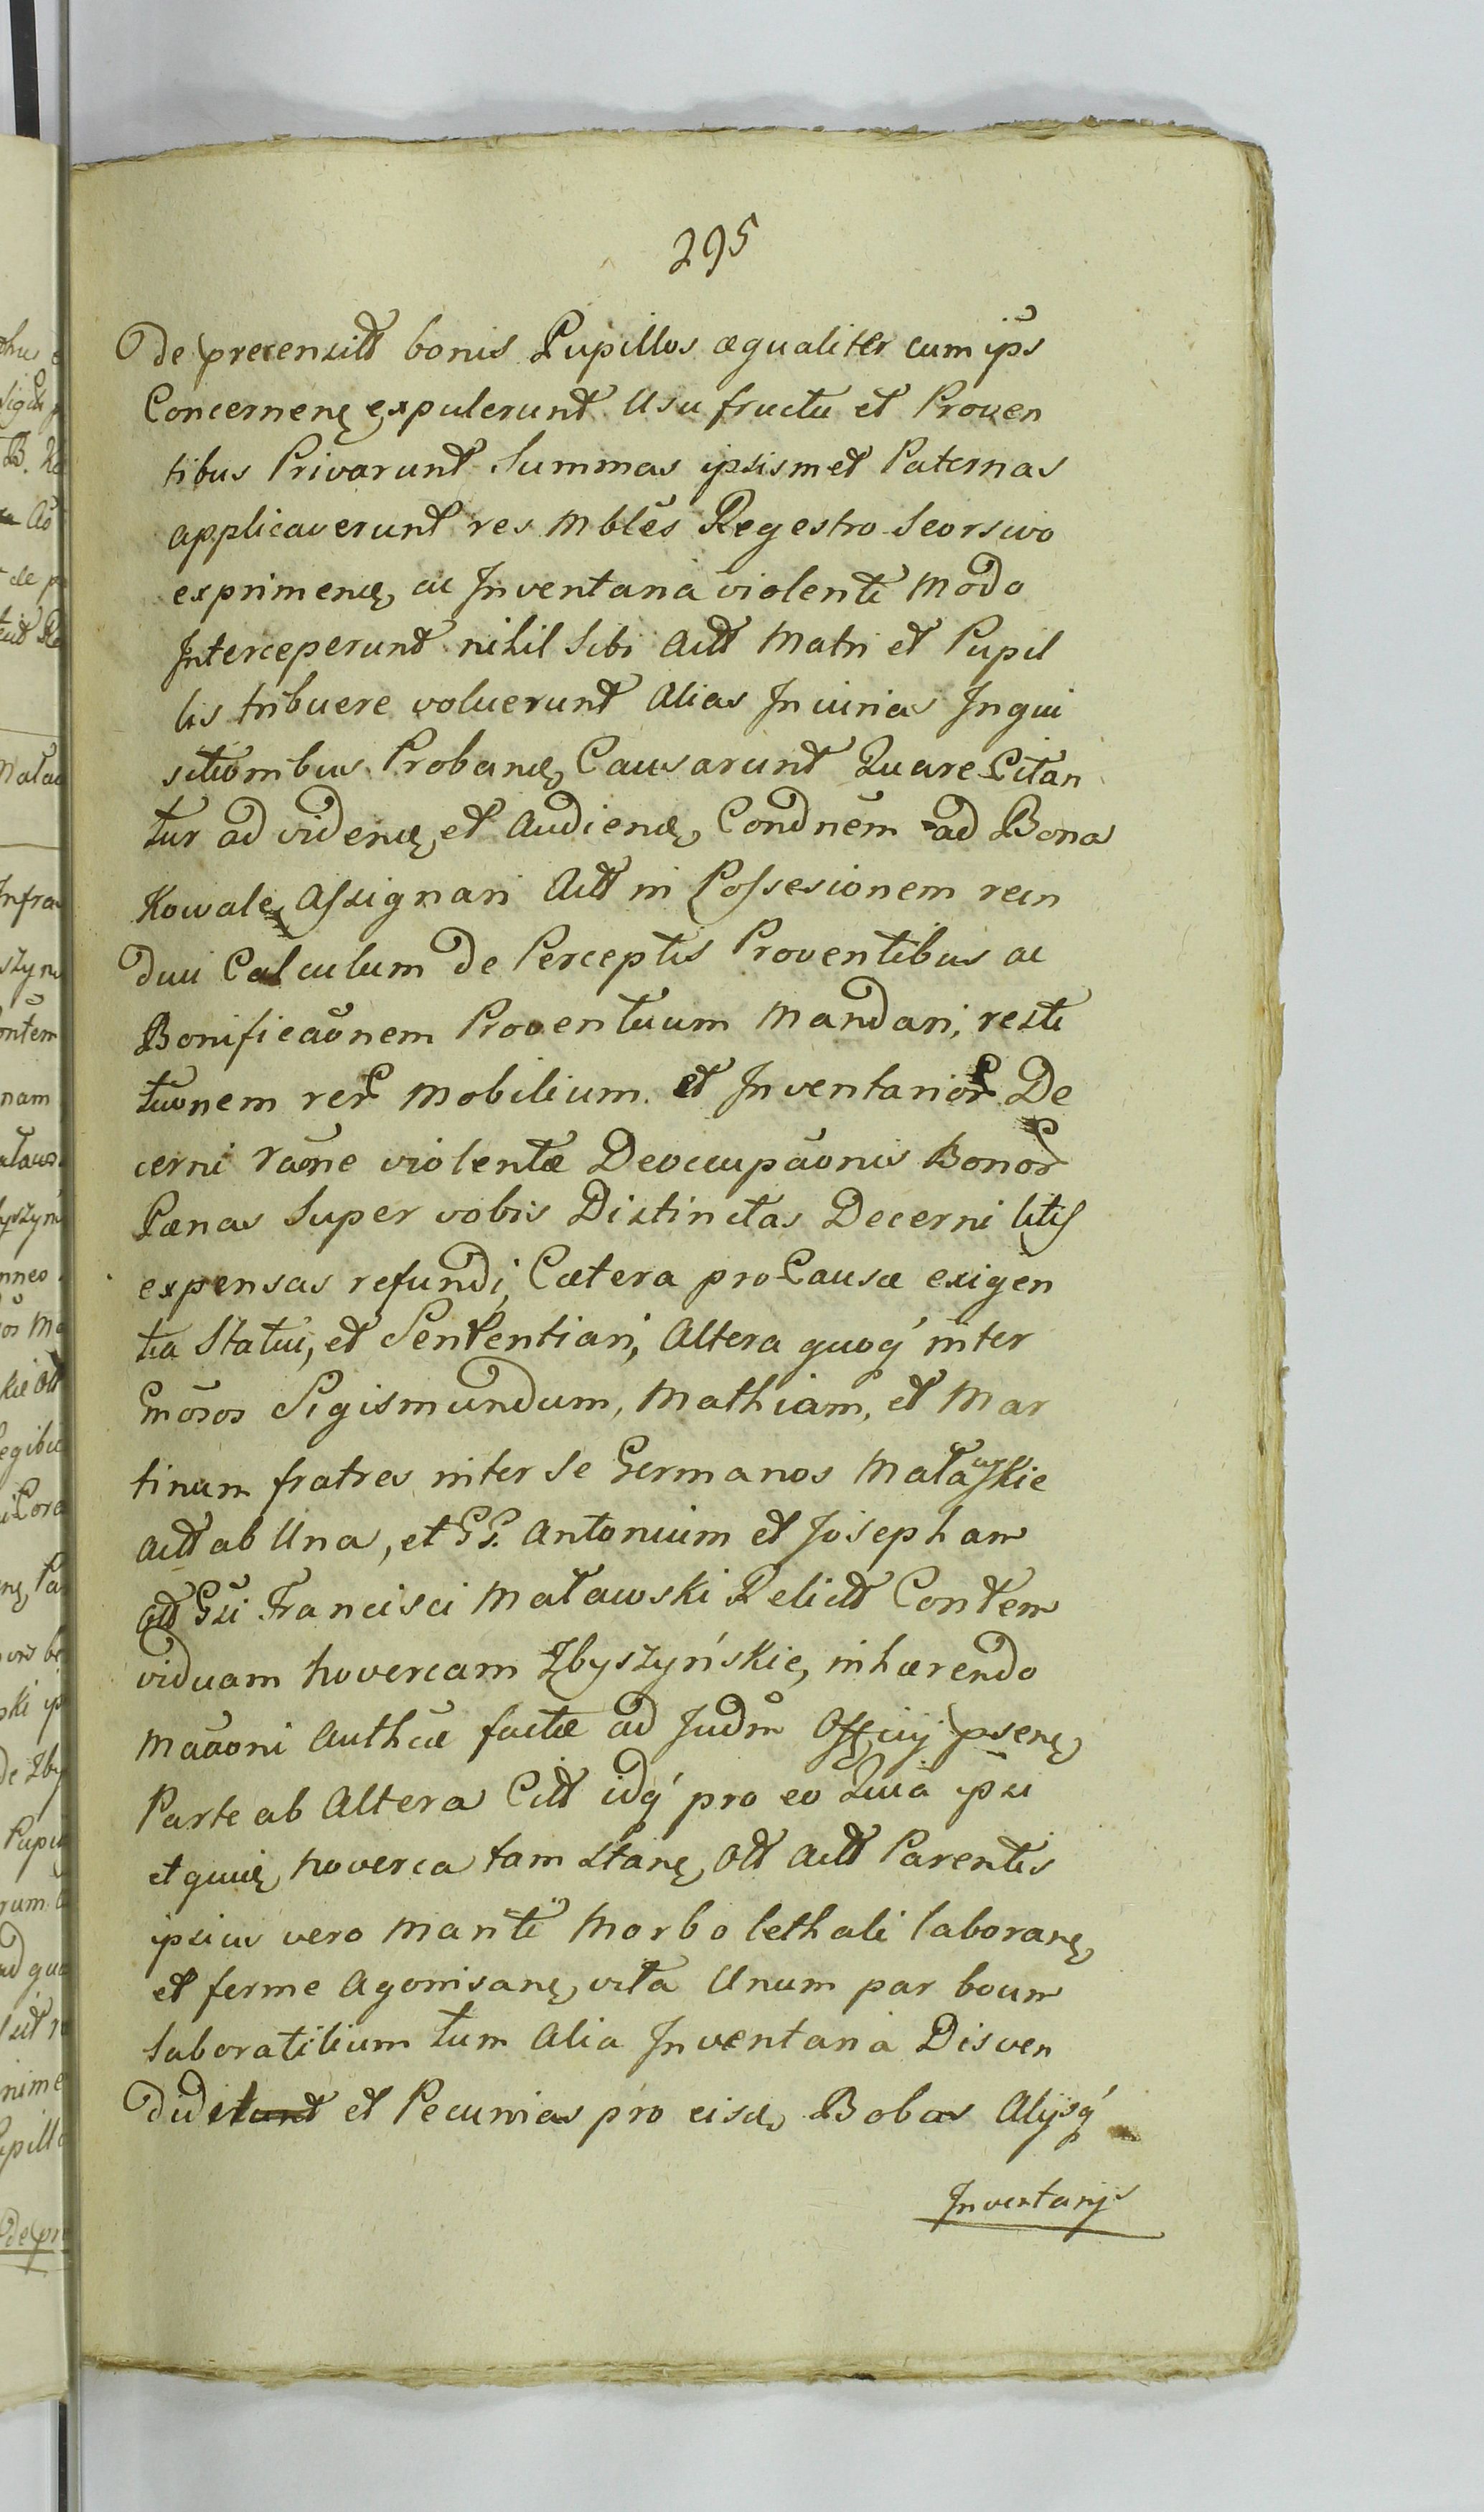 295
de precensitt bonis Pupillos æqualiter cum ip̄s
Concernenę expulerunt Usu fructu et Proven
tibus Privarunt Summas ipsismet Paternas
applicaverunt res Mblēs Regestro Seorsivo
exprimenę, ac Inventaria violente Modo
Interceperunt nihil Sibi Actt Matri et Pupil
lis tribuere voluerunt Alias Iniurias Inqui
sitionibus Probanę, Causarunt Quare Citan
tur ad videnę et Audienę, Condnēm ad Bona
Kowale, Assignari Actt in Possesionem rein
duci Calculum de Perceptis Proventibus ac
Bonificaōnem Proventuum Mandari, resti
tuōnem rer Mobilium et Inventarior De
cerni raōne violentæ Deoccupaōnis Bonor
Pænas Super vobis Distinctas Decerni litis
expensas refundi, Cætera pro Causæ exigen
tia Statui, et Sententiari, Altera quoq́ inter
Gnōsos Sigismundum, Mathiam, et Mar
tinum fratres inter Se Germanos Matawskie
Actt ab Una, et GG. Antonium et Josepham
Ott Gsi Francisci Matawski Relictt Contem
viduam Novercam Zbyszyńskie, inhærendo
Maāoni Authcæ factæ ad Judm̊ Officij p̄senę,
Parte ab Altera Citt idq́ pro eo Quia ipsi
et quię, Noverca tam Stanę, Ott Actt Parentis
ipsius vero Mariti Morbo lethali laboranę,
et ferme Agonisanę, vita Unum par boum
laboratilium tum Alia Inventaria Disven
did et Pecunias pro eisę, Bobas Alijsq́
Inventarijs